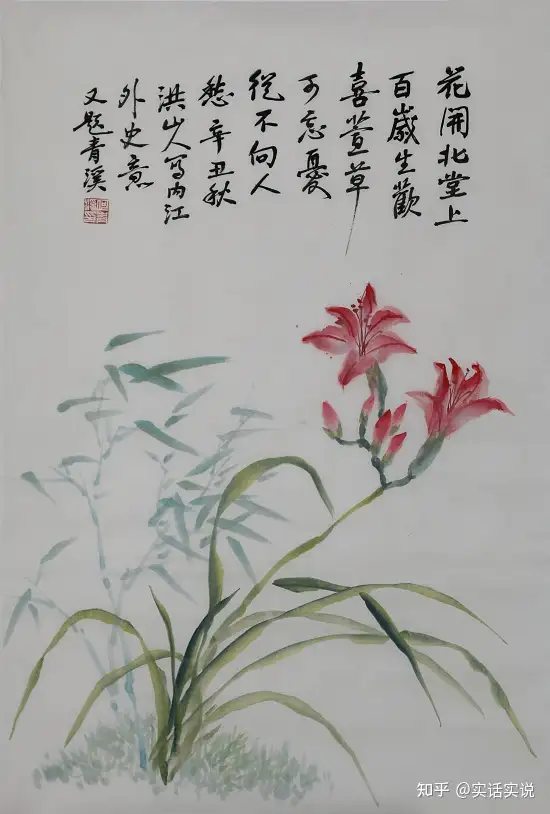 花開北堂上
百歲生歡
喜萱草
可忘憂
從不向人
愁辛丑秋
洪山人寫內江
外史意
又題青溪
知乎 @实话实说